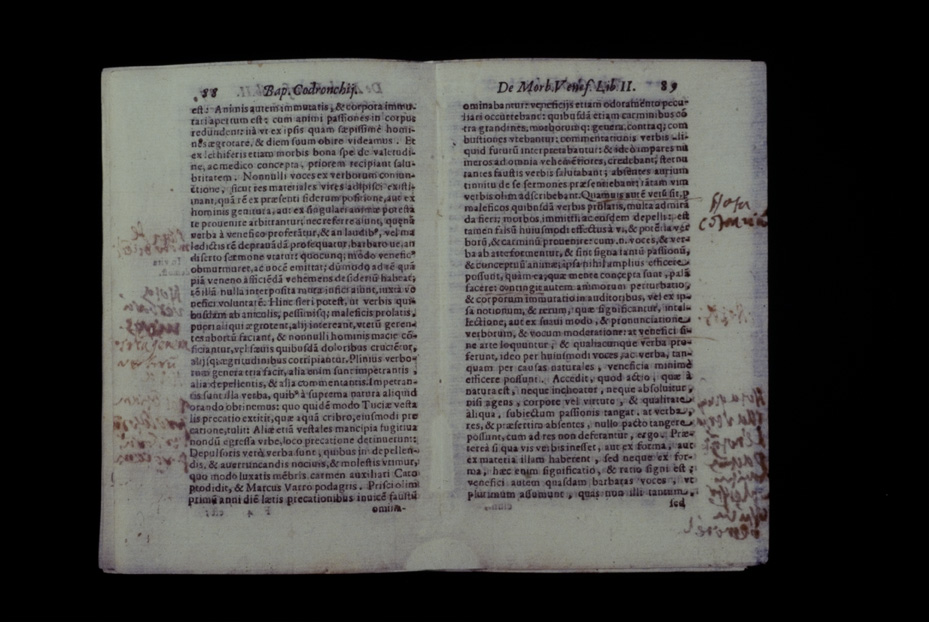 88 Bap. Codronchij.
est: Animis autem immutatis, & corpora immu-
tari apertum est: cum animi passiones in corpus
redundent: ità vt ex ipsis quàm sæpissimè homi-
nes ægrotare, & diem suum obire videamus. Et
ex letiferis etiam morbis bona spe de valetudi-
ne, ac medico concepta, priorem recipiant salu-
britatem. Nonnulli voces ex verborum coniun-
ctione, sicut res materiales vires adipisci existi-
mant, quā rē ex præsenti siderum positione, aut ex
hominis genitura, aut ex singulari animæ potesta
te prouenire arbitrantur, nec referre aiunt,
verba à venefico proferātur, & an laudib', vel ma
ledictis rē deprauādā prosequatur, barbaro ue, an
diserto sermone vtatur: quocunq; modo venefic'
obmurmuret, ac vocē emittat; dūmodo ad rē quā
piā veneno afficiēdā vehemens desideriū habeat;
rē illā nulla interposita mora infici aiunt, iuxtà vo
nefici voluntatē. Hinc fieri potest, ut verbis qui-
busdam ab aniculis, pessimisq; maleficis prolatis,
pueri aliqui ægrotent, alij intereant, vterū geren-
tes abortū faciant, & nonnulli hominis macie cō-
ficiantur, vel sæuis quibusdā doloribus crucientur,
alijsq; ægritudinibus corripiantur. Plinius verbo-
rum genera tria facit, alia enim sunt impetrantis,
alia depellentis, & alia commentantis. Impetran-
tis sunt illa verba, quib' à suprema natura aliquid
orando obtinemus: quo quidē modo Tuciæ vesta
lis precatio extitit, quæ aquā cribro, eiusmodi pre
catione, tulit: Aliæ etiā vestales mancipia fugitiua
nondū egressa vrbe, loco precatione detinuerunt:
Depulsoris verò verba sunt, quibus in depellen-
dis, & auerruncandis nociuis, & molestis vtimur,
quo modo luxatis mēbris carmen auxiliari Cato
prodidit, & Marcus Varro podagris. Prisci olim
primū anni diē lætis precationibus inuicē faustū
omina-
De Morb. Venef. Lib II. 89
ominabantur: veneficijs etiam odoramento pecu-
liari occurrebant: quibusdā etiam carminibus cō
tra grandines, morborumq; genera, contraq; com
bustiones vtebantur: commentationis verbis ali-
quid futurū interpretabantur: & ideò impares nu
meros ad omnia vehemētiores, credebant, sternu
tantes faustis verbis salutabant; absentes aurium
tinnitu de se sermones præsentiebant:
verbis olim adscribebant. Quamuis autē verū sit,
maleficos quibusdā verbis prolatis, multa admirā
da fieri; morbos immitti, ac eosdem depelli: est
tamen falsū huiusmodi effectus à vi, & potētia ver
borū, & carminū prouenire: cum. n. voces, & ver-
ba ab arte formentur, & sint signa tantū passionū,
& conceptus animæ, ipsa nihil amplius efficere
possunt, quàm ea, quæ mente concepta sunt, palā
facere: contingit autem animorum perturbatio,
& corporum immutatio in auditoribus, vel ex ip-
sa notionum, & rerum, quæ significantur, intel-
lectione, aut ex suaui modo, & pronunciatione
verborum, & vocum moderatione: at venefici si-
ne arte loquuntur, & qualiacumque verba pro-
ferunt, ideo per huiusmodi voces, ac verba, tan-
quam per causas naturales, veneficia minimè
efficere possunt. Accedit, quod actio, quæ à
natura est, neque inchoatur, neque absoluitur,
nisi agens, corpore vel virtute, & qualitate
aliqua, subiectum passionis tangat, at verba,
res, & præsertim absentes, nullo pacto tangere
possunt, cum ad res non deferantur, ergo. Præ-
tereà si qua vis verbis inesset, aut ex forma, aut
ex materia illam haberent, sed neque ex for-
ma, hæc enim significatio, & ratio signi est;
venefici autem quasdam barbaras voces, vt
plurimum assumunt, quas non illi tantum,
sed